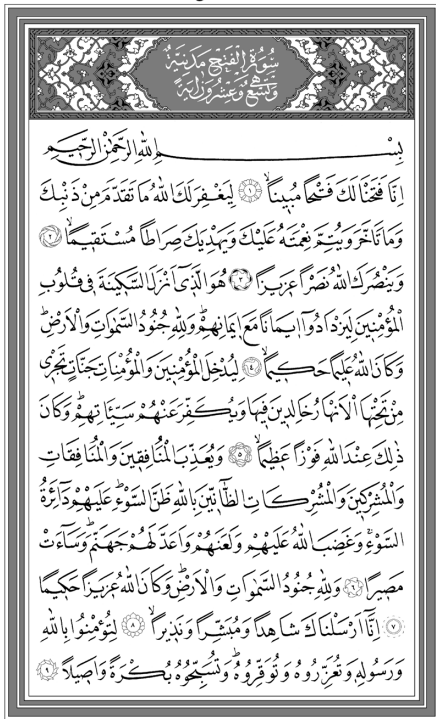 سُورَةُ الْفَتْحِ مَدَنِيَّةٌ
وَهِيَ تِسْعٌ وَعِشْرُونَ اٰيَةً
بِسْمِ اللّٰهِ الرَّحْمٰنِ الرَّحٖيمِ
اِنَّا فَتَحْنَا لَكَ فَتْحًا مُبٖينًاۙ ﴿١﴾ لِيَغْفِرَ لَكَ اللّٰهُ مَا تَقَدَّمَ مِنْ ذَنْبِكَ
وَمَا تَاَخَّرَ وَيُتِمَّ نِعْمَتَهُ عَلَيْكَ وَيَهْدِيَكَ صِرَاطًا مُسْتَقٖيمًاۙ ﴿٢﴾
وَيَنْصُرَكَ اللّٰهُ نَصْرًا عَزٖيزًا ﴿٣﴾ هُوَ الَّذٖٓي اَنْزَلَ السَّكٖينَةَ فٖي قُلُوبِ
الْمُؤْمِنٖينَ لِيَزْدَادُٓوا اٖيمَانًا مَعَ اٖيمَانِهِمْۜ وَلِلّٰهِ جُنُودُ السَّمٰوَاتِ وَالْاَرْضِۜ
وَكَانَ اللّٰهُ عَلٖيمًا حَكٖيمًاۙ ﴿٤﴾ لِيُدْخِلَ الْمُؤْمِنٖينَ وَالْمُؤْمِنَاتِ جَنَّاتٍ تَجْرٖي
مِنْ تَحْتِهَا الْاَنْهَارُ خَالِدٖينَ فٖيهَا وَيُكَفِّرَ عَنْهُمْ سَيِّـَٔاتِهِمْۜ وَكَانَ
ذٰلِكَ عِنْدَ اللّٰهِ فَوْزًا عَظٖيمًاۙ ﴿٥﴾ وَيُعَذِّبَ الْمُنَافِقٖينَ وَالْمُنَافِقَاتِ
وَالْمُشْرِكٖينَ وَالْمُشْرِكَاتِ الظَّٓانّٖينَ بِاللّٰهِ ظَنَّ السَّوْءِۜ عَلَيْهِمْ دَٓائِرَةُ
السَّوْءِۚ وَغَضِبَ اللّٰهُ عَلَيْهِمْ وَلَعَنَهُمْ وَاَعَدَّ لَهُمْ جَهَنَّمَۜ وَسَٓاءَتْ
مَصٖيرًا ﴿٦﴾ وَلِلّٰهِ جُنُودُ السَّمٰوَاتِ وَالْاَرْضِۜ وَكَانَ اللّٰهُ عَزٖيزًا حَكٖيمًا
﴿٧﴾ اِنَّٓا اَرْسَلْنَاكَ شَاهِدًا وَمُبَشِّرًا وَنَذٖيرًاۙ ﴿٨﴾ لِتُؤْمِنُوا بِاللّٰهِ
وَرَسُولِهٖ وَتُعَزِّرُوهُ وَتُوَقِّرُوهُۜ وَتُسَبِّحُوهُ بُكْرَةً وَاَصٖيلًا ﴿٩﴾